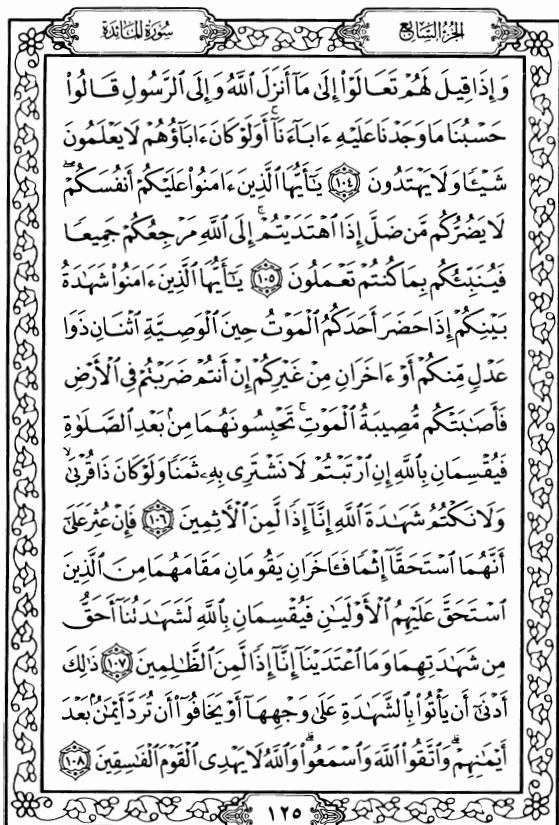 سُورَةُ المَائـِدَةِ
الجُزءُ السَّابِعُ
وَإِذَا قِيلَ لَهُمۡ تَعَالَوۡاْ إِلَىٰ مَآ أَنزَلَ ٱللَّهُ وَإِلَى ٱلرَّسُولِ قَالُواْ
حَسۡبُنَا مَا وَجَدۡنَا عَلَيۡهِ ءَابَآءَنَآۚ أَوَلَوۡ كَانَ ءَابَآؤُهُمۡ لَا يَعۡلَمُونَ
شَيۡـٔٗا وَلَا يَهۡتَدُونَ ١٠٤ يَٰٓأَيُّهَا ٱلَّذِينَ ءَامَنُواْ عَلَيۡكُمۡ أَنفُسَكُمۡۖ
لَا يَضُرُّكُم مَّن ضَلَّ إِذَا ٱهۡتَدَيۡتُمۡۚ إِلَى ٱللَّهِ مَرۡجِعُكُمۡ جَمِيعٗا
فَيُنَبِّئُكُم بِمَا كُنتُمۡ تَعۡمَلُونَ ١٠٥ يَٰٓأَيُّهَا ٱلَّذِينَ ءَامَنُواْ شَهَٰدَةُ
بَيۡنِكُمۡ إِذَا حَضَرَ أَحَدَكُمُ ٱلۡمَوۡتُ حِينَ ٱلۡوَصِيَّةِ ٱثۡنَانِ ذَوَا
عَدۡلٖ مِّنكُمۡ أَوۡ ءَاخَرَانِ مِنۡ غَيۡرِكُمۡ إِنۡ أَنتُمۡ ضَرَبۡتُمۡ فِي ٱلۡأَرۡضِ
فَأَصَٰبَتۡكُم مُّصِيبَةُ ٱلۡمَوۡتِۚ تَحۡبِسُونَهُمَا مِنۢ بَعۡدِ ٱلصَّلَوٰةِ
فَيُقۡسِمَانِ بِٱللَّهِ إِنِ ٱرۡتَبۡتُمۡ لَا نَشۡتَرِي بِهِۦ ثَمَنٗا وَلَوۡ كَانَ ذَا قُرۡبَىٰ
وَلَا نَكۡتُمُ شَهَٰدَةَ ٱللَّهِ إِنَّآ إِذٗا لَّمِنَ ٱلۡأٓثِمِينَ ١٠٦ فَإِنۡ عُثِرَ عَلَىٰٓ
أَنَّهُمَا ٱسۡتَحَقَّآ إِثۡمٗا فَـَٔاخَرَانِ يَقُومَانِ مَقَامَهُمَا مِنَ ٱلَّذِينَ
ٱسۡتَحَقَّ عَلَيۡهِمُ ٱلۡأَوۡلَيَٰنِ فَيُقۡسِمَانِ بِٱللَّهِ لَشَهَٰدَتُنَآ أَحَقُّ
مِن شَهَٰدَتِهِمَا وَمَا ٱعۡتَدَيۡنَآ إِنَّآ إِذٗا لَّمِنَ ٱلظَّٰلِمِينَ ١٠٧ ذَٰلِكَ
أَدۡنَىٰٓ أَن يَأۡتُواْ بِٱلشَّهَٰدَةِ عَلَىٰ وَجۡهِهَآ أَوۡ يَخَافُوٓاْ أَن تُرَدَّ أَيۡمَٰنُۢ بَعۡدَ
أَيۡمَٰنِهِمۡۗ وَٱتَّقُواْ ٱللَّهَ وَٱسۡمَعُواْۗ وَٱللَّهُ لَا يَهۡدِي ٱلۡقَوۡمَ ٱلۡفَٰسِقِينَ ١٠٨
١٢٥